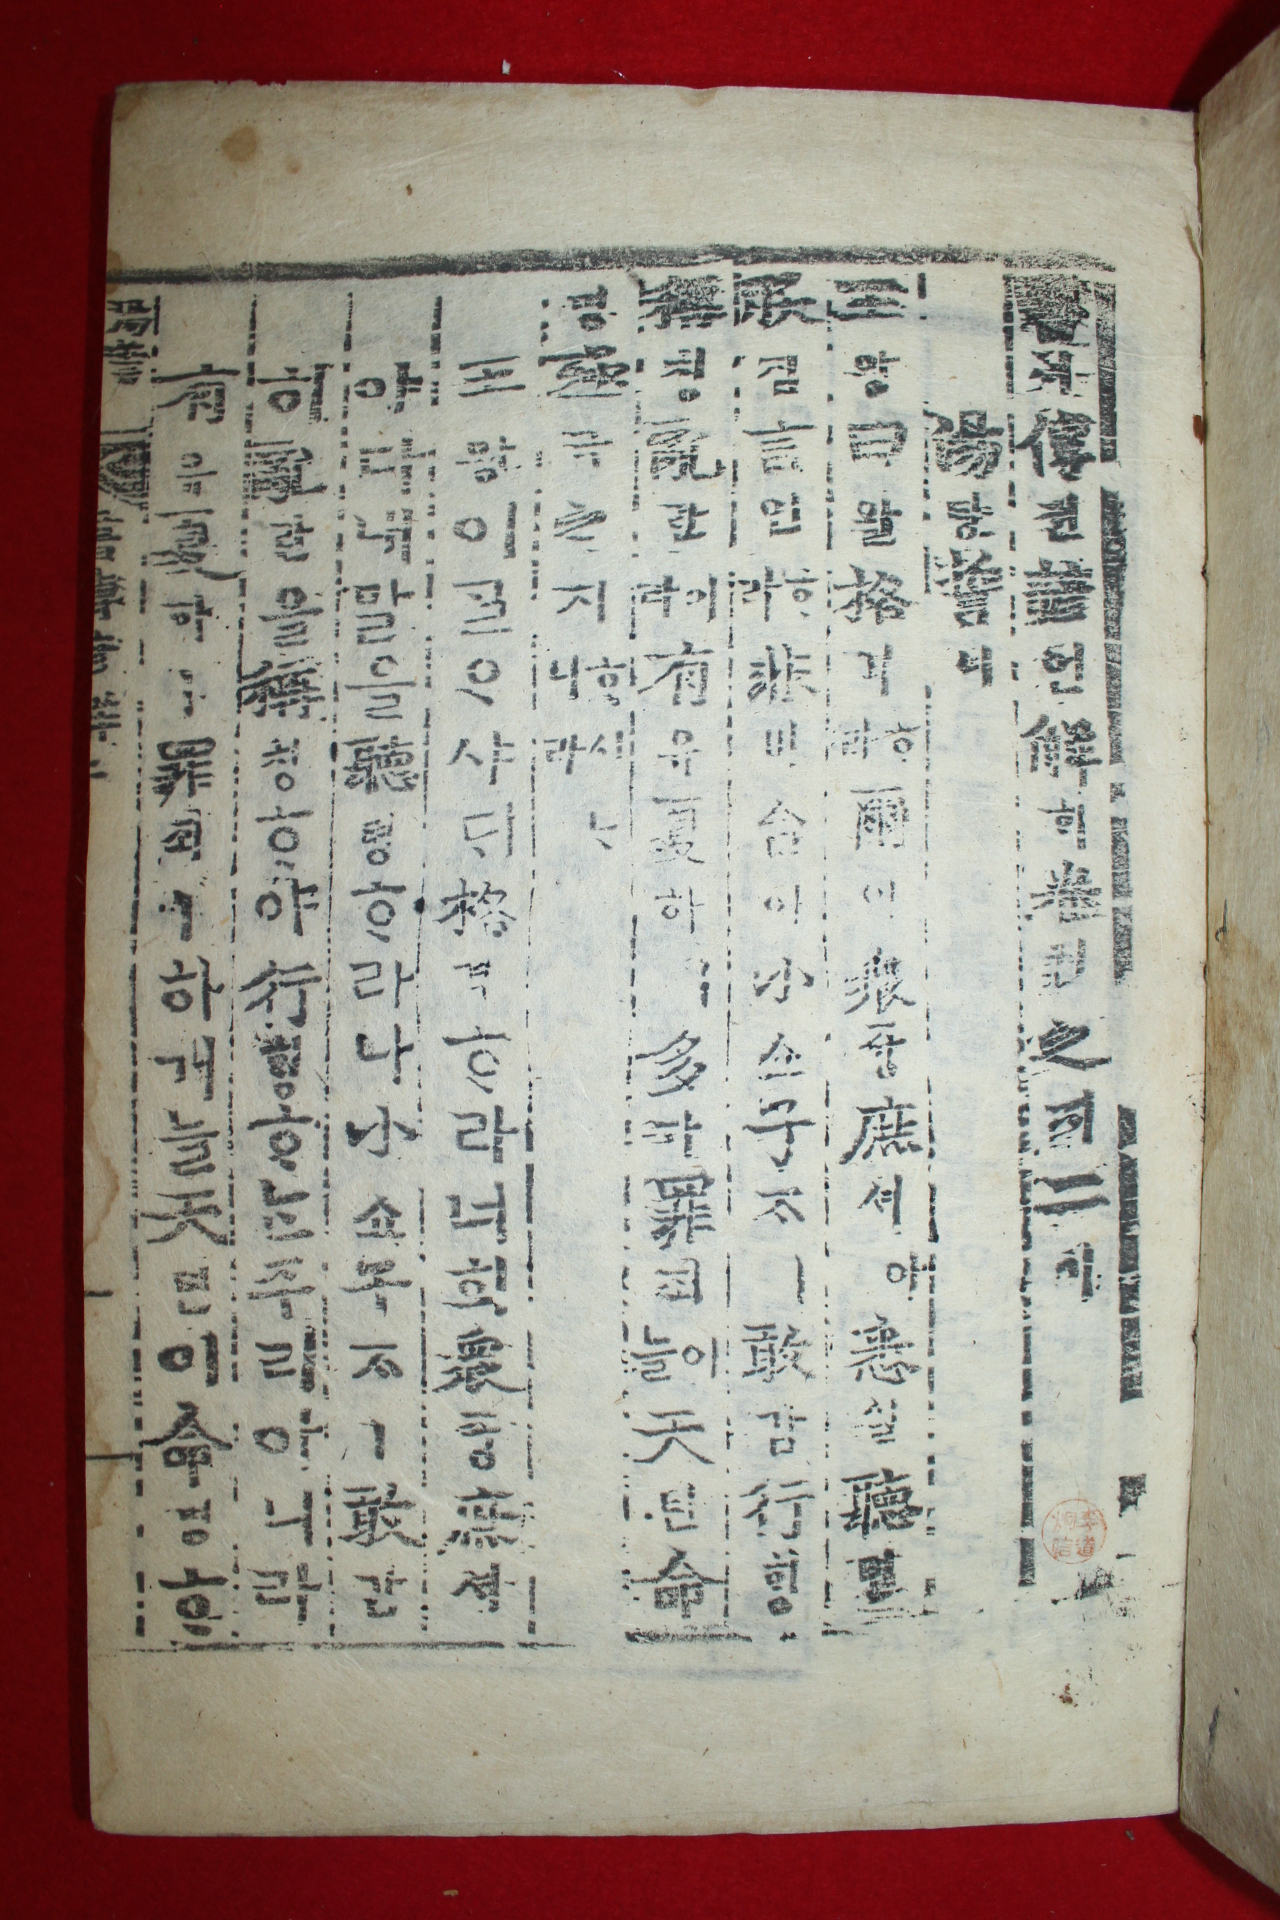 書셔傳뎐諺언解ᄒᆡ卷권之지二이
湯탕誓셔
王왕曰왈格격ᄒᆞ라爾이衆즁庶셔아悉실聽텽
朕짐言언ᄒᆞ라非비台이小쇼子ᄌᆞㅣ敢감行ᄒᆡᆼ
稱칭亂란이라有유夏하ㅣ多다罪죄어늘天텬命
명殛극之지ᄒᆞ시ᄂᆞ니라
王왕이ᄀᆞᆯᄋᆞ샤ᄃᆡ格격ᄒᆞ라너희衆즁庶셔
아다내말을聽텽ᄒᆞ라나小쇼子ᄌᆞㅣ敢감
히亂란을稱칭ᄒᆞ야行ᄒᆡᆼᄒᆞᄂᆞᆫ주리아니라
有유夏하ㅣ罪죄ㅣ하거늘天텬이命명ᄒᆞ야